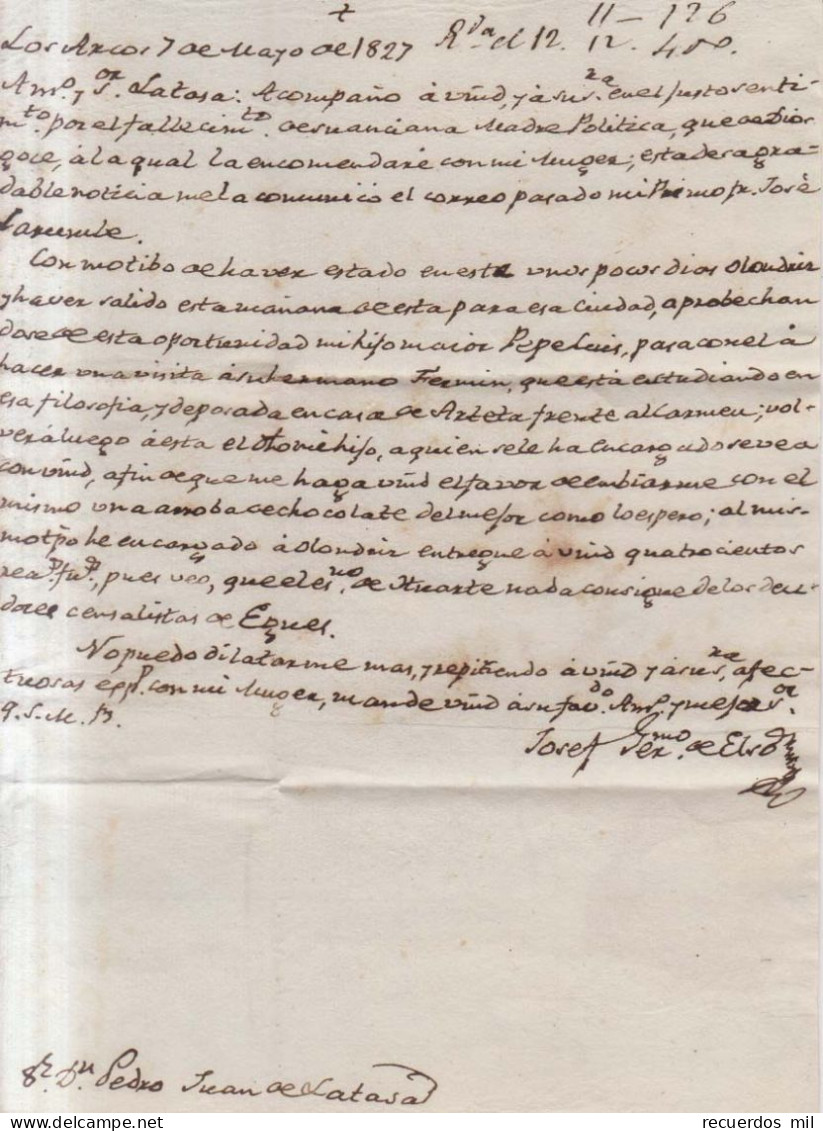 +
Los Arcos 7 de Mayo de 1827 R.da el 12. 11 — 126
12. 400.
Am.o y S.or Latasa: Acompaño à vmd, y à su s.ra en el justo senti-
m.to por el fallecim.to de su anciana Madre Politica, que de Dios
goce, à la qual la encomendaré con mi Muger; esta desagra-
dable noticia me la comunicó el correo pasado mi Primo fr. José
Con motibo de haver estado en esta unos pocos dias Olondriz
y haver salido esta mañana de esta para esa Ciudad, aprobechan
dose de esta oportunidad mi hijo maior Pepe Luis, pasa con el à
hacer una visita à su hermano Fermin, que està estudiando en
esa filosofia, y de posada en casa de Arteta frente al Carmen; vol-
verá luego à esta el dho mi hijo, a quien se le ha encargado se vea
con vmd, a fin de que me haga vmd el favor de embiarme con el
mismo una arroba de chocolate del mejor como lo espero; al mis-
mo tpo he encargado à Olondriz entregue à vmd quatrocientos
rea.s fu.s, pues veo, que el es.no de Ituarte nada consigue de los deu-
dores censalistas de Egues.
No puedo dilatarme mas, y repitiendo à vmd y à su s.ra afec-
tuosas esp.s con mi Muger, mande vmd à su Am.o y mejor s.or
q. S. M. B.
Josef Ger.mo de Elso
S.r D.n Pedro Juan de Latasa
recuerdos mil